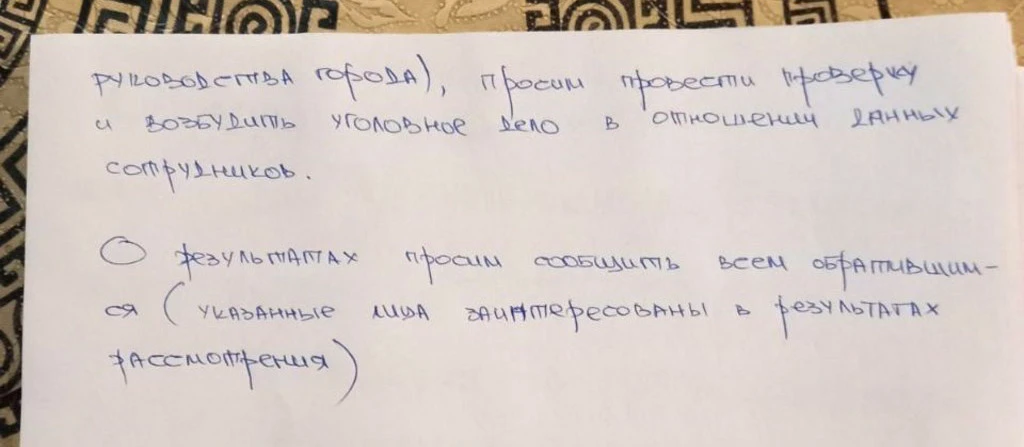 руководства города), просим провести проверку
и возбудить уголовное дело в отношении данных
сотрудников.
О результатах просим сообщить всем обратившим-
ся (указанные лица заинтересованы в результатах
рассмотрения)